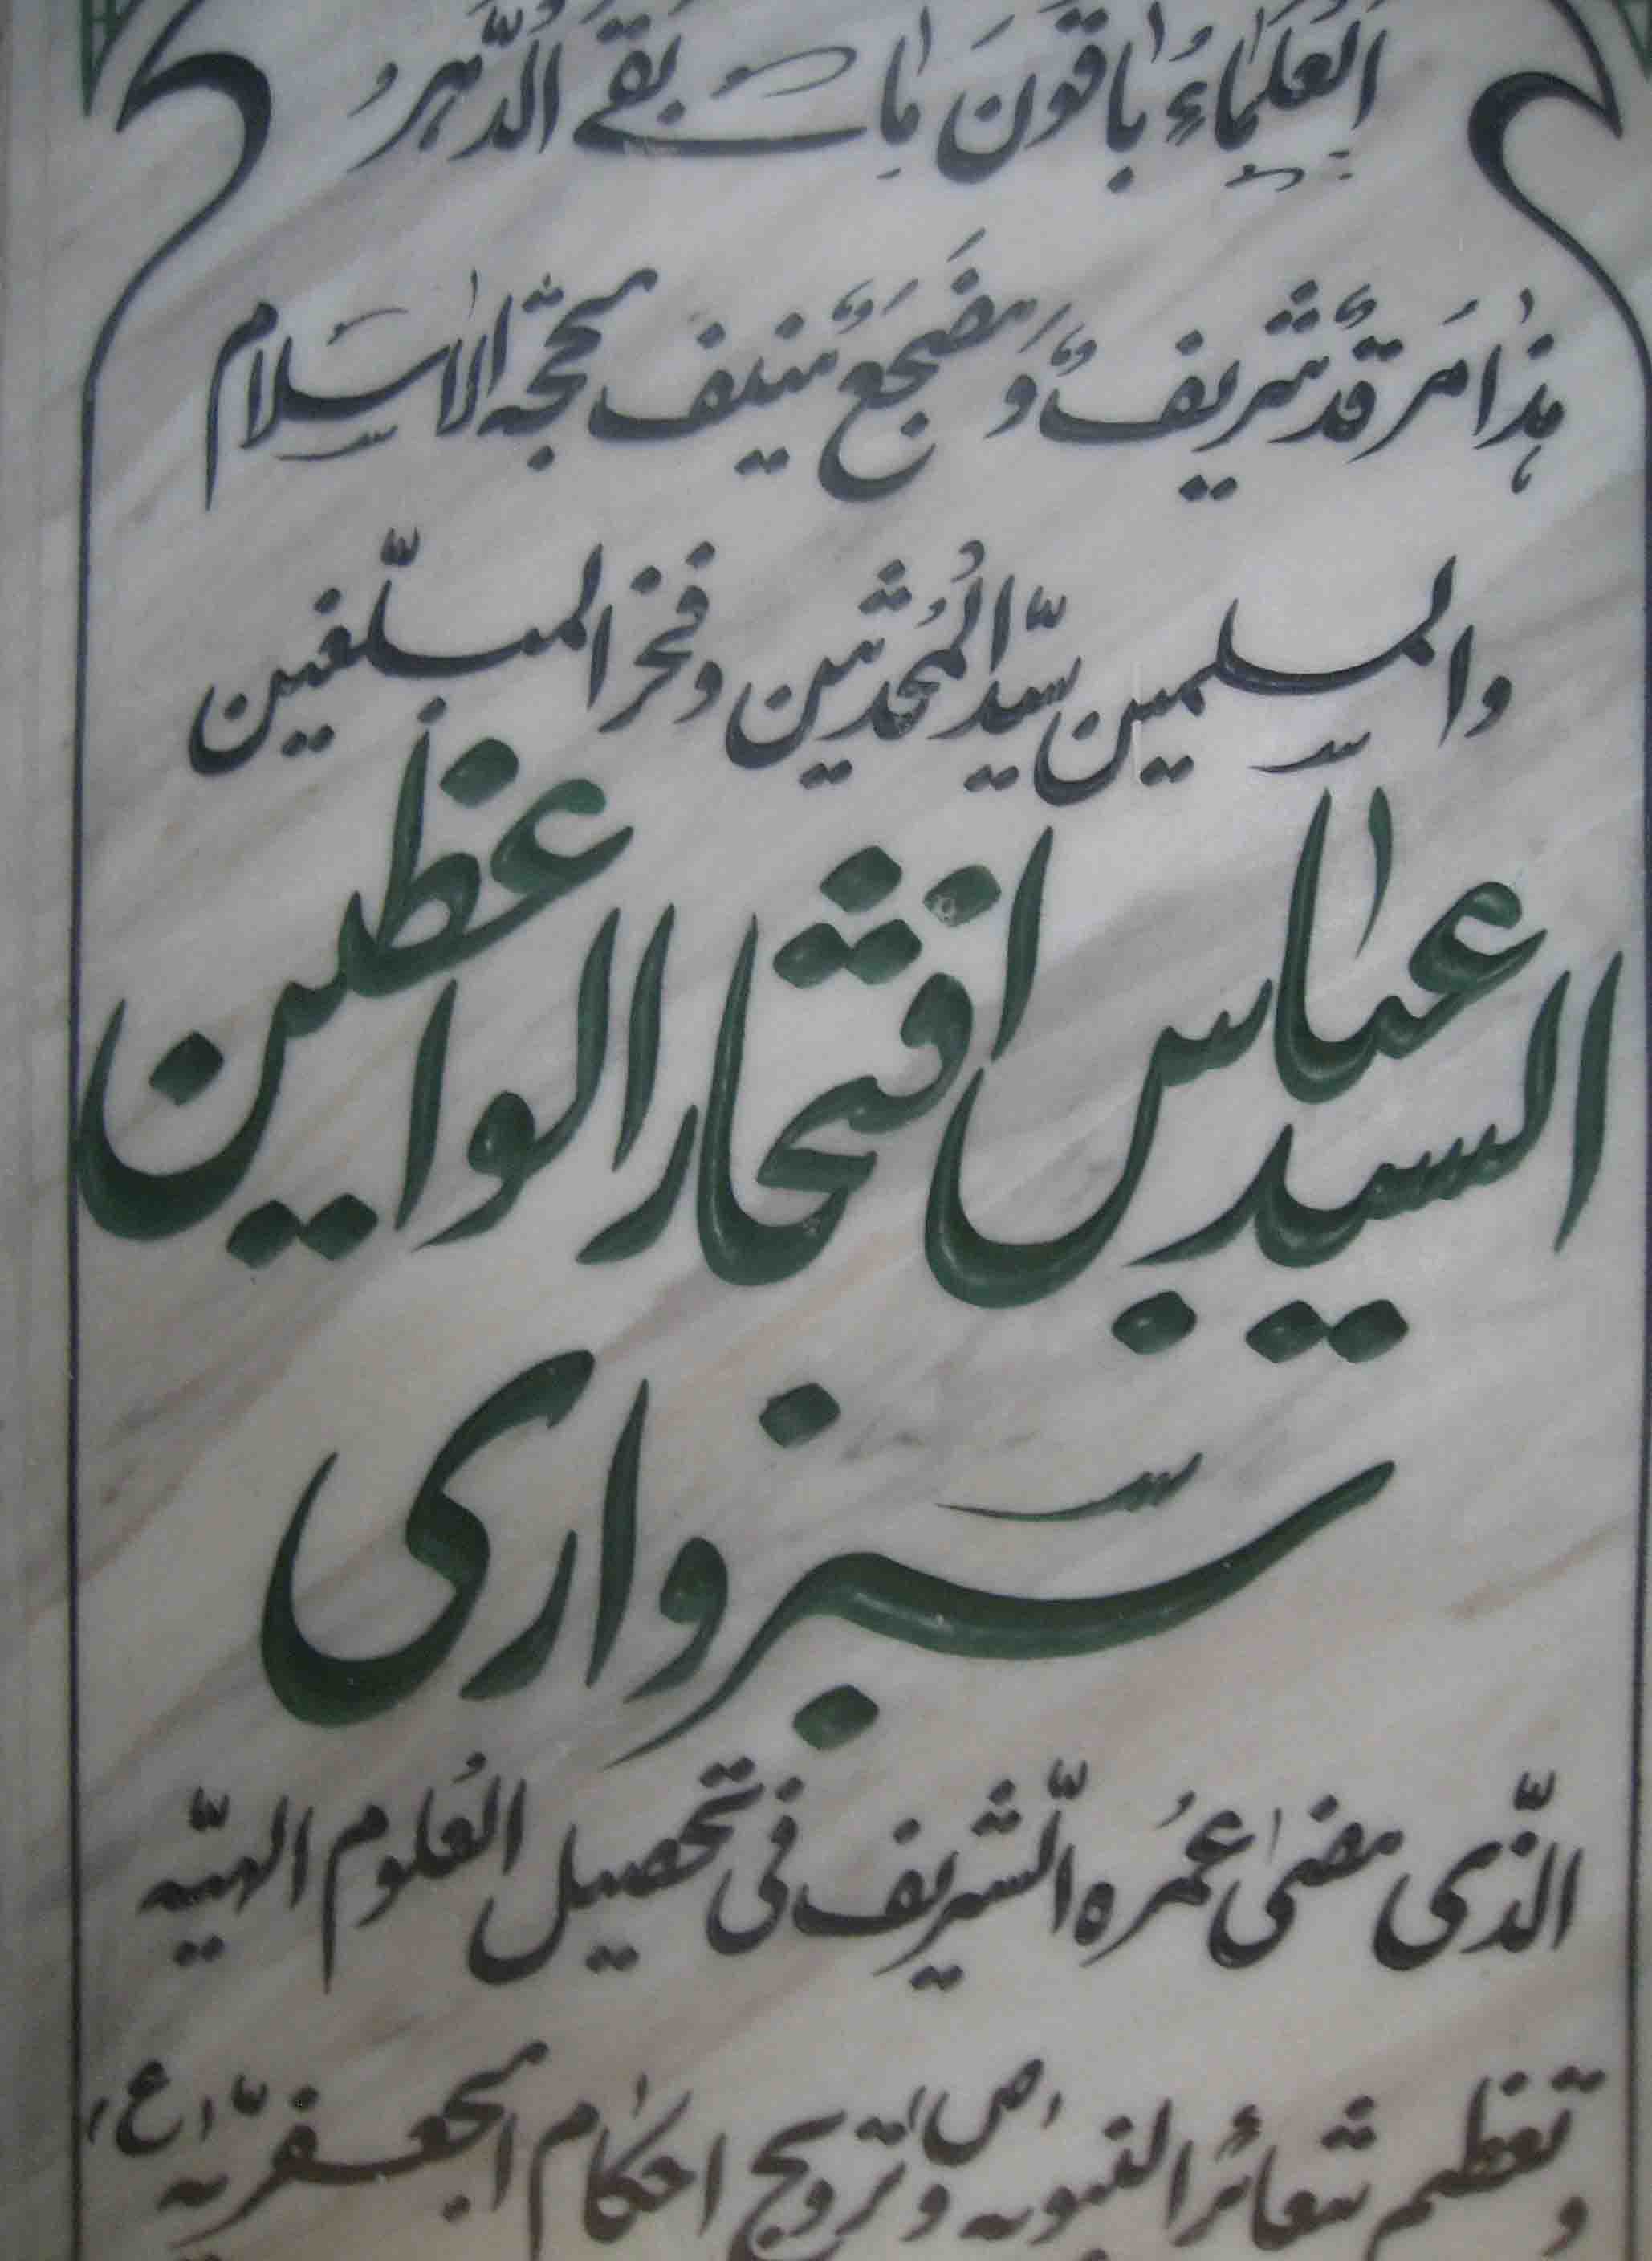 اَلعُلَماءُ باقُونَ ما بَقیَ الدَّهرُ
هذا مَرقَدٌ شَریفٌ وَ مَضجَعٌ مُنیف حجّة الاسلام
والمسلمین سیّد المُحدثین و فخر المبلّغین
السید عباس افتخار الواعظین
سبزواری
الّذی مضیٰ عُمره الشّریف فی تحصیل العُلوم الهیّه
و تعظیم شعائر النبویه (ص) و ترویج احکام الجعفریّه (ع)